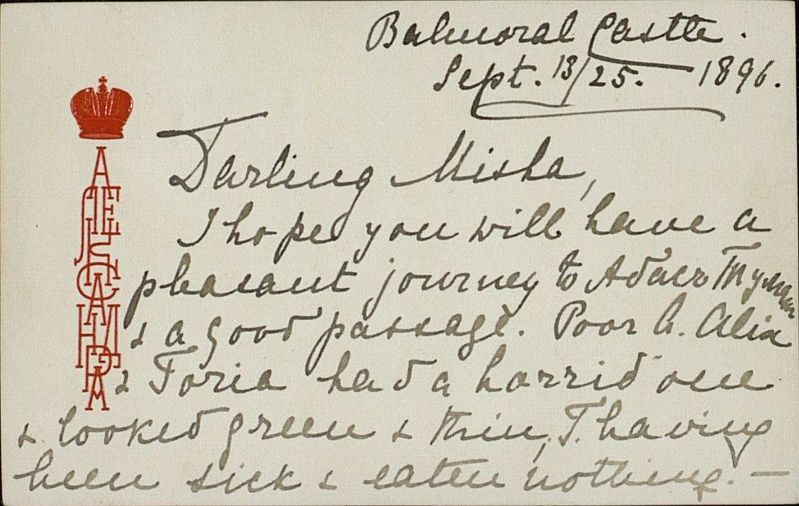 Balmoral Castle.
Sept. 13/25. 1896.
АЛЕКСАНДРА
Darling Misha,
I hope you will have a
pleasant journey to Абасъ Туман
& a good passage. Poor A. Alix
& Toria had a horrid one
& looked green & thin, T. having
been sick & eaten nothing. —